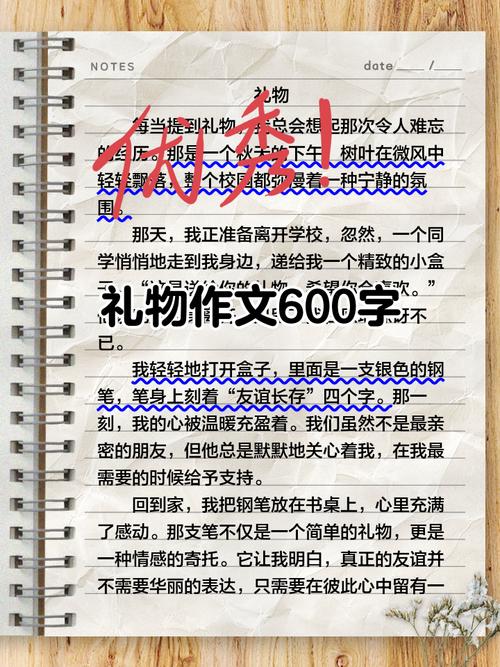 NOTES
date ____ / ____
礼物
每当提到礼物，我总会想起那次令人难忘
的经历。那是一个秋天的下午，树叶在微风中
轻轻飘落，整个校园都弥漫着一种宁静的氛
围。
优秀！
那天，我正准备离开学校，忽然，一个同
学悄悄地走到我身边，递给我一个精致的小盒
“这是送给你的礼物，希望你会喜欢。”
礼物作文600字
已。
我轻轻地打开盒子，里面是一支银色的钢
笔，笔身上刻着“友谊长存”四个字。那一
刻，我的心被温暖充盈着。我们虽然不是最亲
密的朋友，但他总是默默地关心着我，在我最
需要的时候给予支持。
回到家，我把钢笔放在书桌上，心里充满
了感动。那支笔不仅是一个简单的礼物，更是
一种情感的寄托。它让我明白，真正的友谊并
不需要华丽的表达，只需要在彼此心中留有一